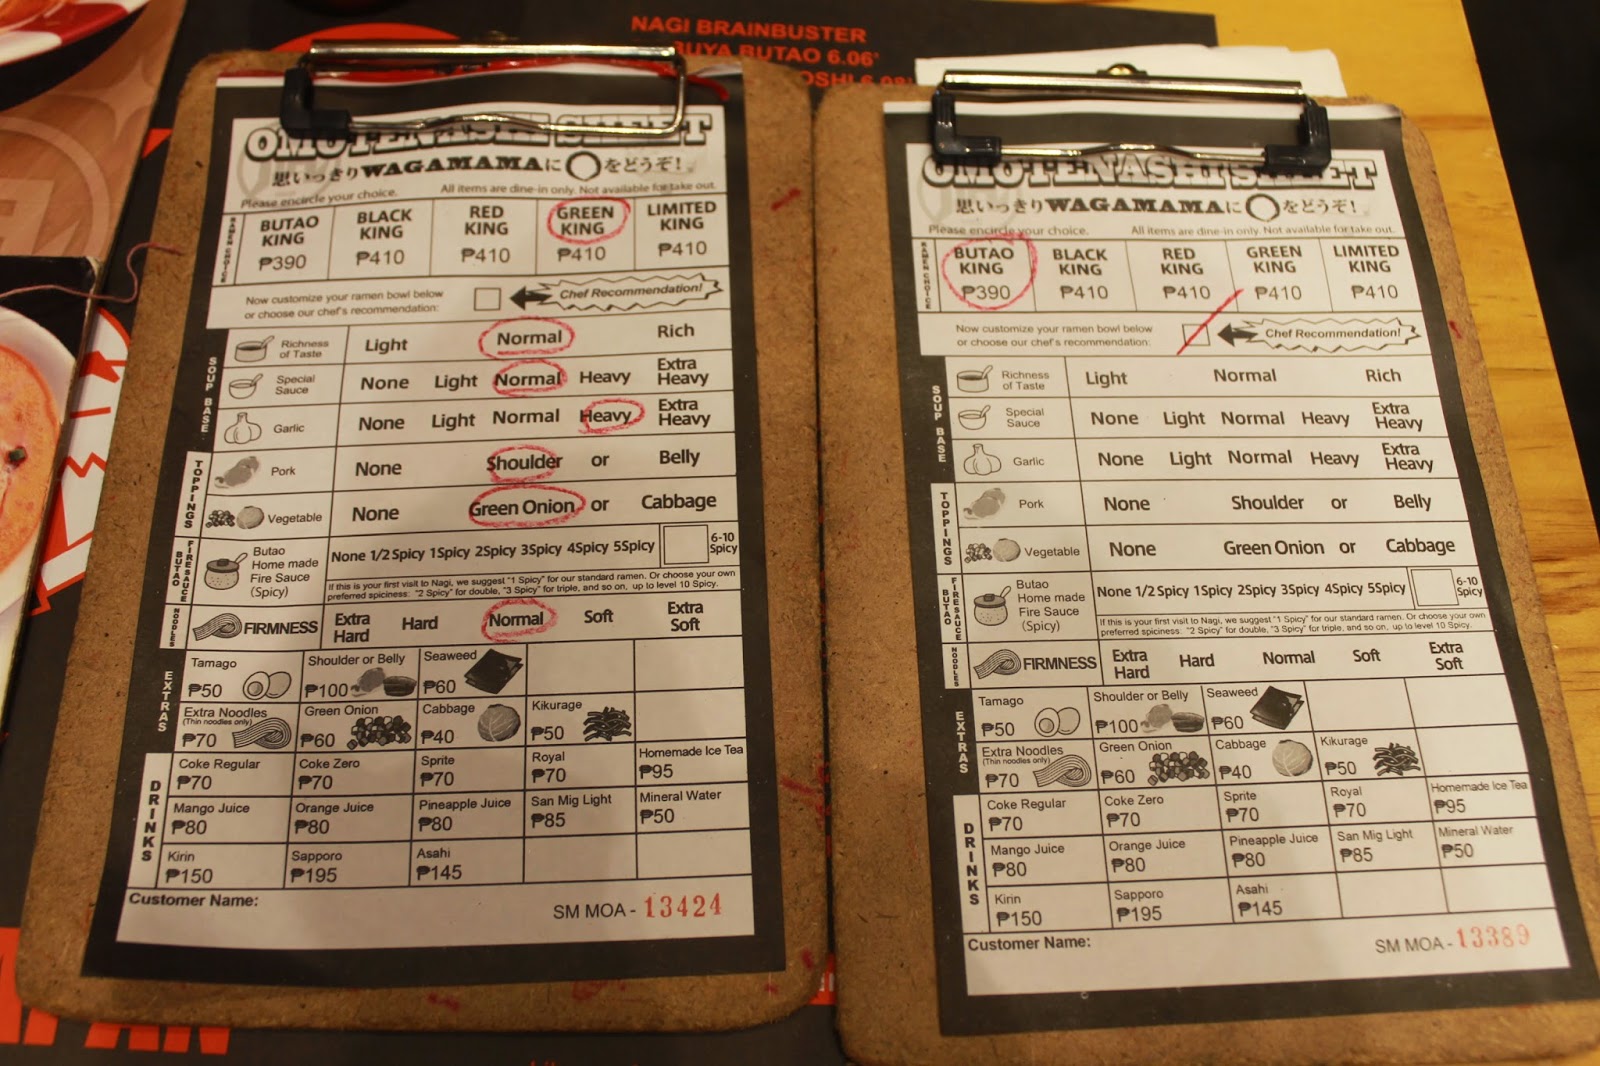 NAGI BRAINBUSTER
BUYA BUTAO 6.06'
OSHI 6.08'
OMOTENASHI SHEET
思いっきりWAGAMAMAに◯をどうぞ!
Please encircle your choice. All items are dine-in only. Not available for take out.
RAMEN CHOICE
BUTAO KING ₱390
BLACK KING ₱410
RED KING ₱410
GREEN KING ₱410
LIMITED KING ₱410
Now customize your ramen bowl below
or choose our chef's recommendation:
Chef Recommendation!
SOUP BASE
Richness of Taste Light Normal Rich
Special Sauce None Light Normal Heavy Extra Heavy
Garlic None Light Normal Heavy Extra Heavy
TOPPINGS
Pork None Shoulder or Belly
Vegetable None Green Onion or Cabbage
BUTAO FIRE SAUCE
Butao Home made Fire Sauce (Spicy) None 1/2 Spicy 1Spicy 2Spicy 3Spicy 4Spicy 5Spicy 6-10 Spicy
If this is your first visit to Nagi, we suggest "1 Spicy" for our standard ramen. Or choose your own
preferred spiciness: "2 Spicy" for double, "3 Spicy" for triple, and so on, up to level 10 Spicy.
NOODLES
FIRMNESS Extra Hard Hard Normal Soft Extra Soft
EXTRAS
Tamago ₱50 Shoulder or Belly ₱100 Seaweed ₱60
Extra Noodles (Thin noodles only) ₱70 Green Onion ₱60 Cabbage ₱40 Kikurage ₱50
DRINKS
Coke Regular ₱70 Coke Zero ₱70 Sprite ₱70 Royal ₱70 Homemade Ice Tea ₱95
Mango Juice ₱80 Orange Juice ₱80 Pineapple Juice ₱80 San Mig Light ₱85 Mineral Water ₱50
Kirin ₱150 Sapporo ₱195 Asahi ₱145
Customer Name: SM MOA - 13424
OMOTENASHI SHEET
思いっきりWAGAMAMAに◯をどうぞ!
Please encircle your choice. All items are dine-in only. Not available for take out.
RAMEN CHOICE
BUTAO KING ₱390
BLACK KING ₱410
RED KING ₱410
GREEN KING ₱410
LIMITED KING ₱410
Now customize your ramen bowl below
or choose our chef's recommendation:
Chef Recommendation!
SOUP BASE
Richness of Taste Light Normal Rich
Special Sauce None Light Normal Heavy Extra Heavy
Garlic None Light Normal Heavy Extra Heavy
TOPPINGS
Pork None Shoulder or Belly
Vegetable None Green Onion or Cabbage
BUTAO FIRE SAUCE
Butao Home made Fire Sauce (Spicy) None 1/2 Spicy 1Spicy 2Spicy 3Spicy 4Spicy 5Spicy 6-10 Spicy
If this is your first visit to Nagi, we suggest "1 Spicy" for our standard ramen. Or choose your own
preferred spiciness: "2 Spicy" for double, "3 Spicy" for triple, and so on, up to level 10 Spicy.
NOODLES
FIRMNESS Extra Hard Hard Normal Soft Extra Soft
EXTRAS
Tamago ₱50 Shoulder or Belly ₱100 Seaweed ₱60
Extra Noodles (Thin noodles only) ₱70 Green Onion ₱60 Cabbage ₱40 Kikurage ₱50
DRINKS
Coke Regular ₱70 Coke Zero ₱70 Sprite ₱70 Royal ₱70 Homemade Ice Tea ₱95
Mango Juice ₱80 Orange Juice ₱80 Pineapple Juice ₱80 San Mig Light ₱85 Mineral Water ₱50
Kirin ₱150 Sapporo ₱195 Asahi ₱145
Customer Name: SM MOA - 13389